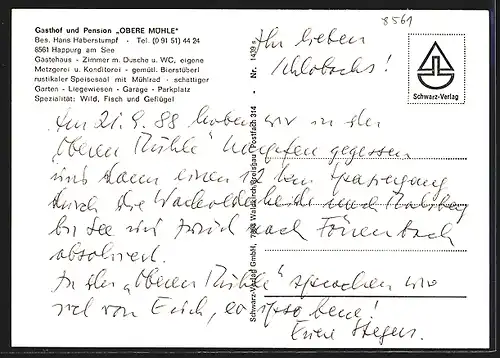 8561
Gasthof und Pension „OBERE MÜHLE"
Bes. Hans Haberstumpf · Tel. (0 91 51) 44 24
8561 Happurg am See
Gästehaus - Zimmer m. Dusche u. WC, eigene
Metzgerei u. Konditorei - gemütl. Bierstüberl
rustikaler Speisesaal mit Mühlrad - schattiger
Garten - Liegewiesen - Garage - Parkplatz
Spezialität: Wild, Fisch und Geflügel
Ihr lieben
Schlobachs!
Schwarz-Verlag
Schwarz-Verlag GmbH, Waldkirch/Breisgau Postfach 314 · Nr. 1439
Am 21.9.88 haben wir in der
„Oberen Mühle" Karpfen gegessen
und dann einen Spaziergang
durch die Wacholderheide
bis See und zurück nach Förrenbach
absolviert.
In der „Oberen Mühle" sprachen wir
viel von Euch,
Eure Stegers.